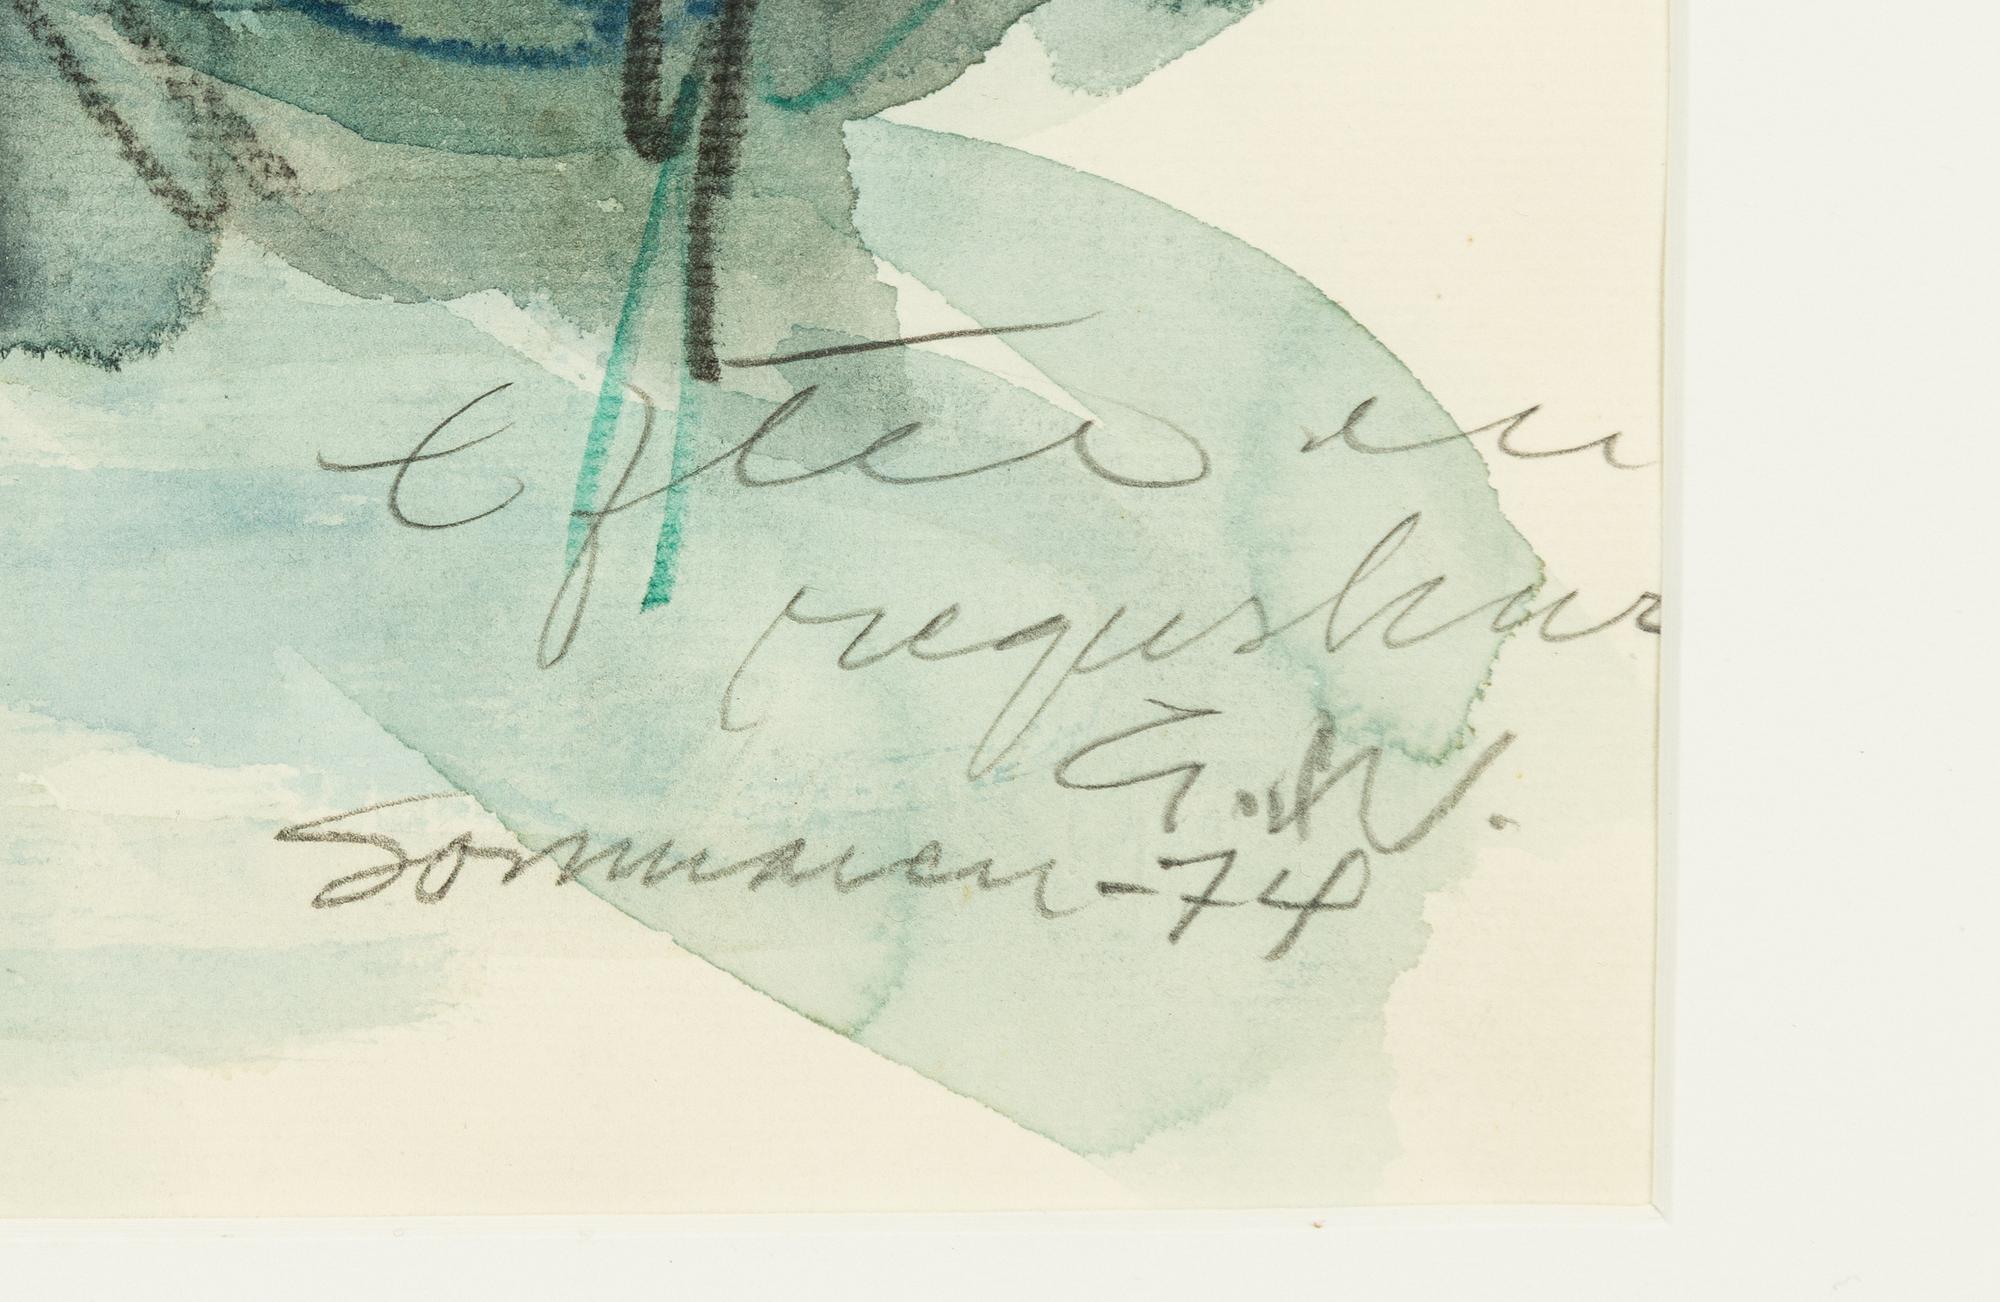 Efter en
regnskur
G.W.
Sommaren -74